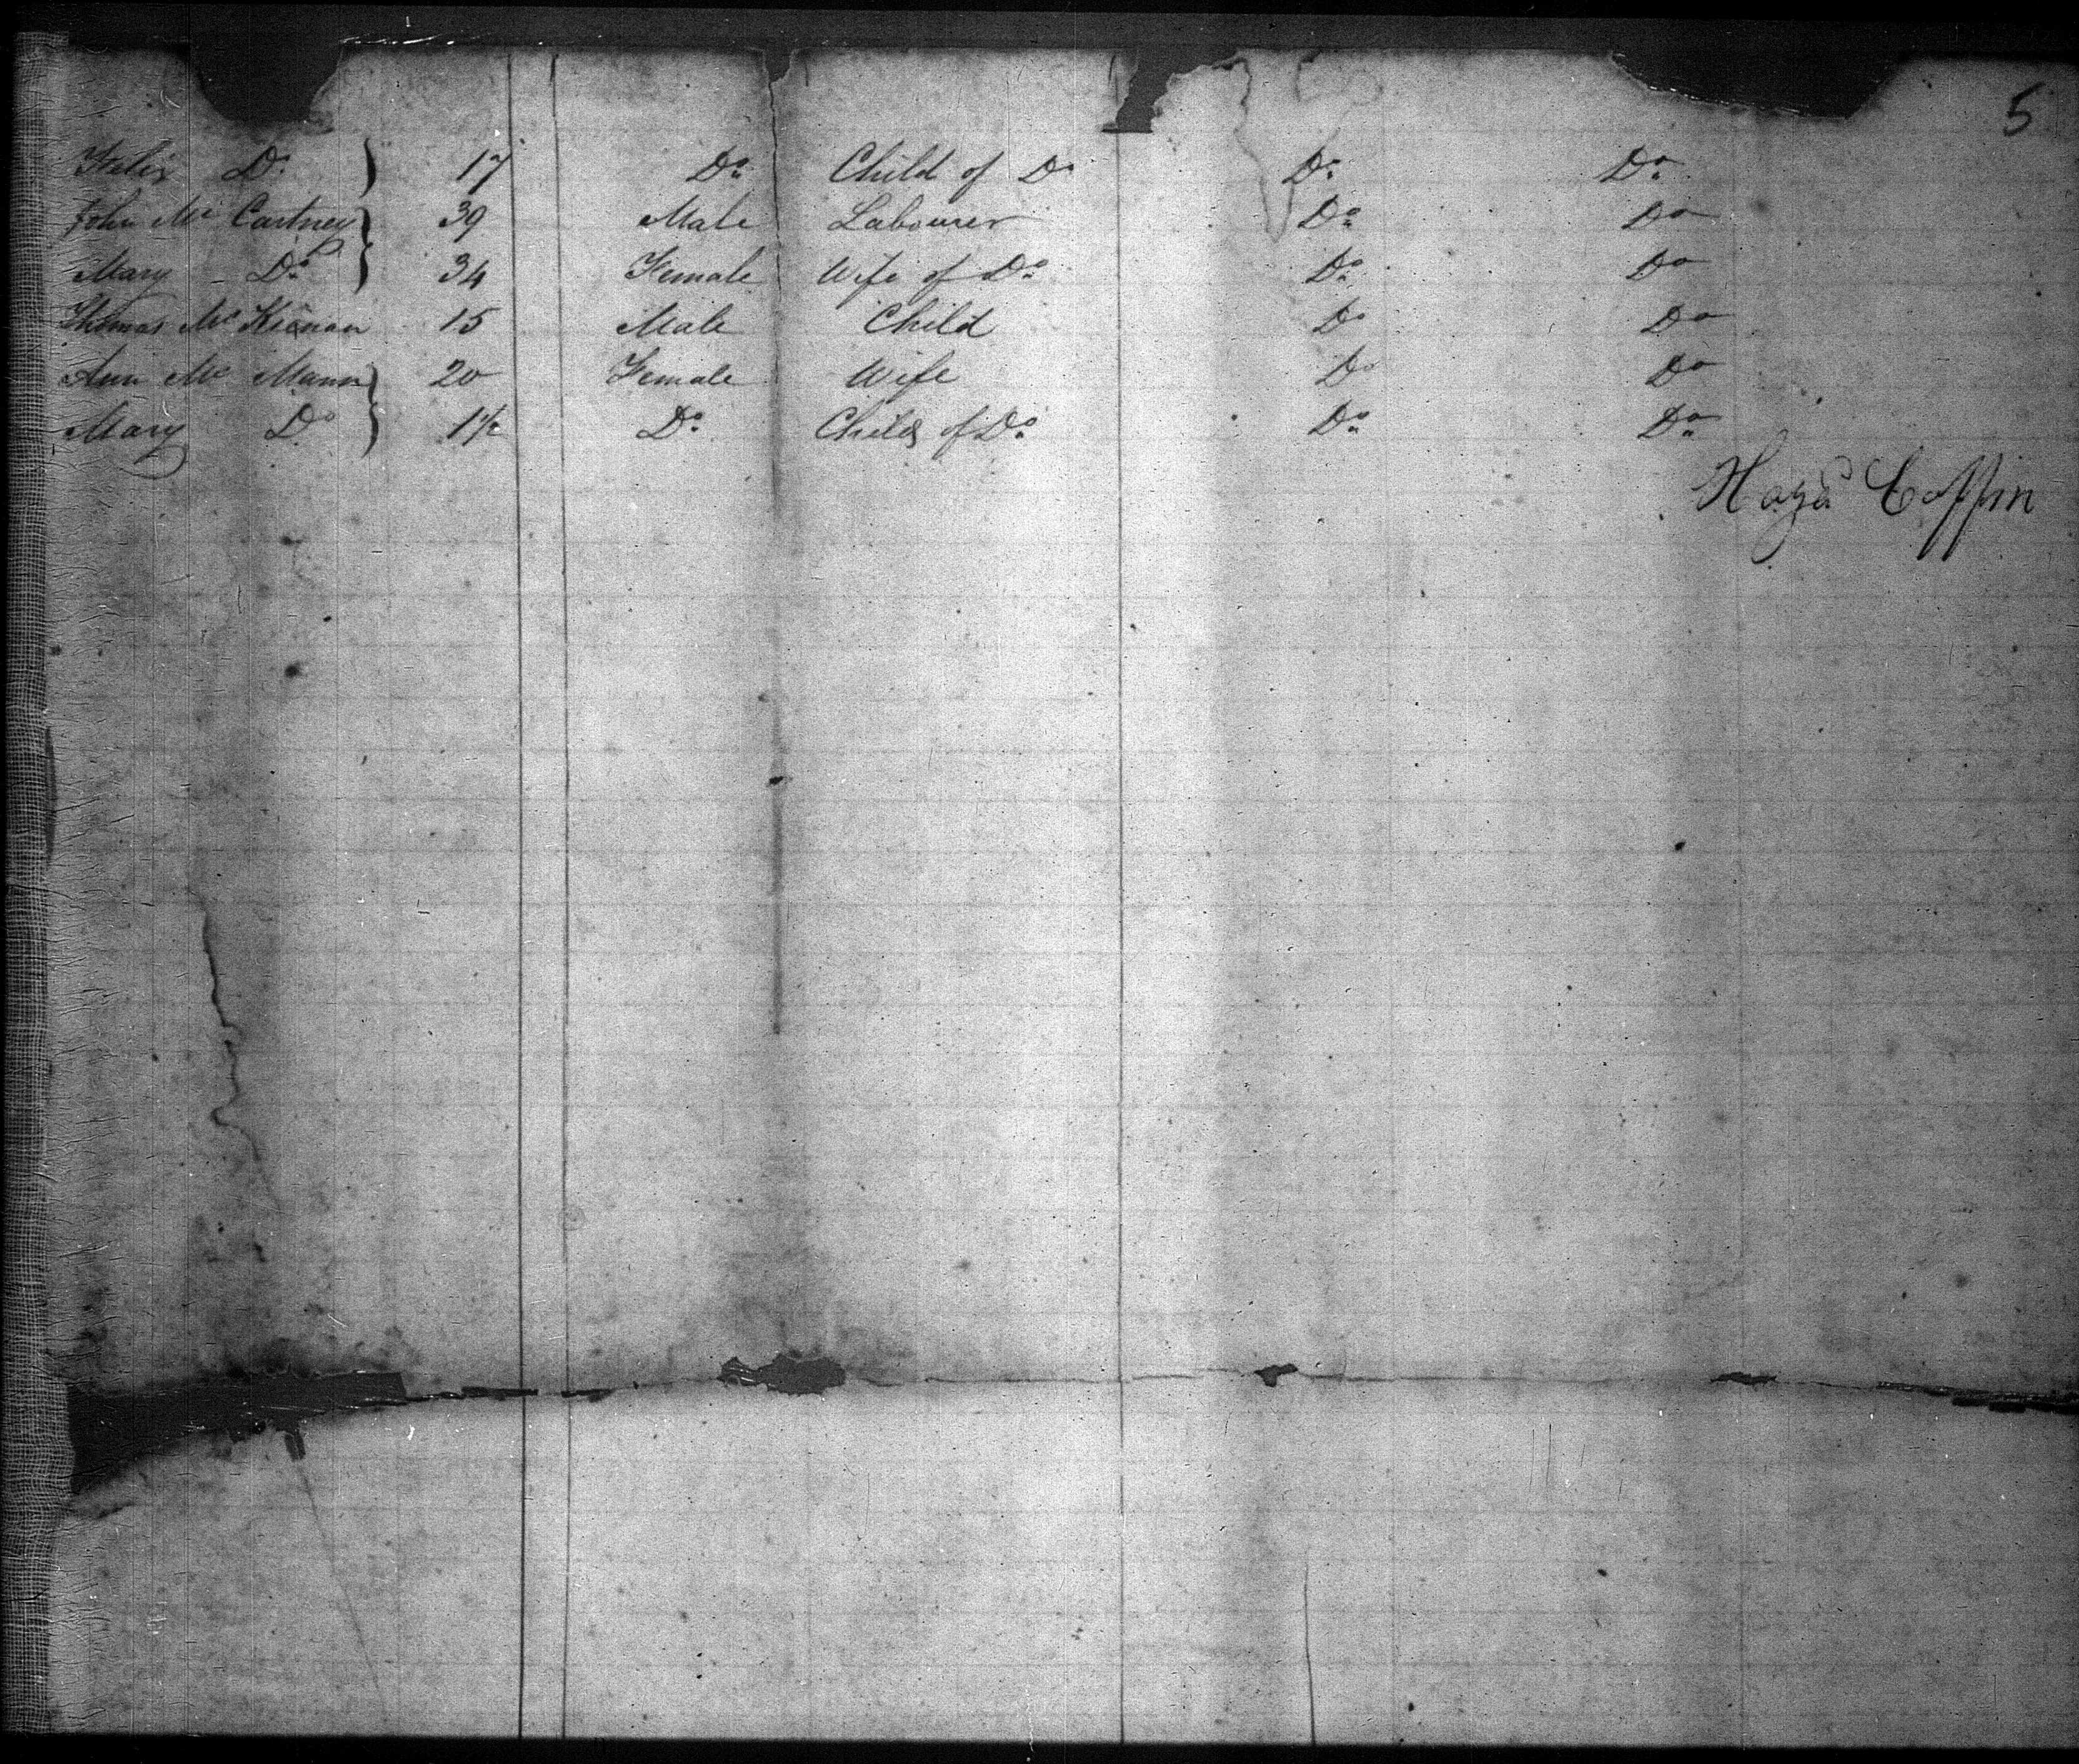 5
Felix Do } 17 Do Child of Do Do Do
John Mc Cartney } 39 Male Labourer Do Do
Mary Do } 34 Female Wife of Do Do Do
Thomas Mc Kienan 15 Male Child Do Do
Ann Mc Mann } 20 Female Wife Do Do
Mary Do } 1½ Do Child of Do Do Do
Coffin